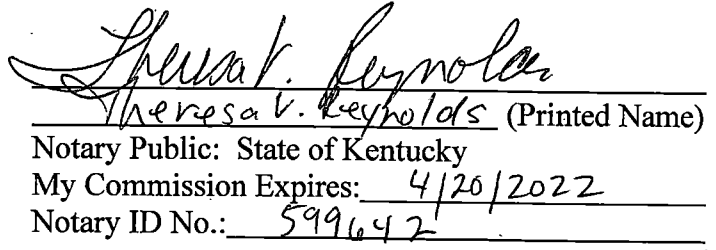 Theresa V. Reynolds
Theresa V. Reynolds (Printed Name)
Notary Public: State of Kentucky
My Commission Expires: 4/20/2022
Notary ID No.: 599642